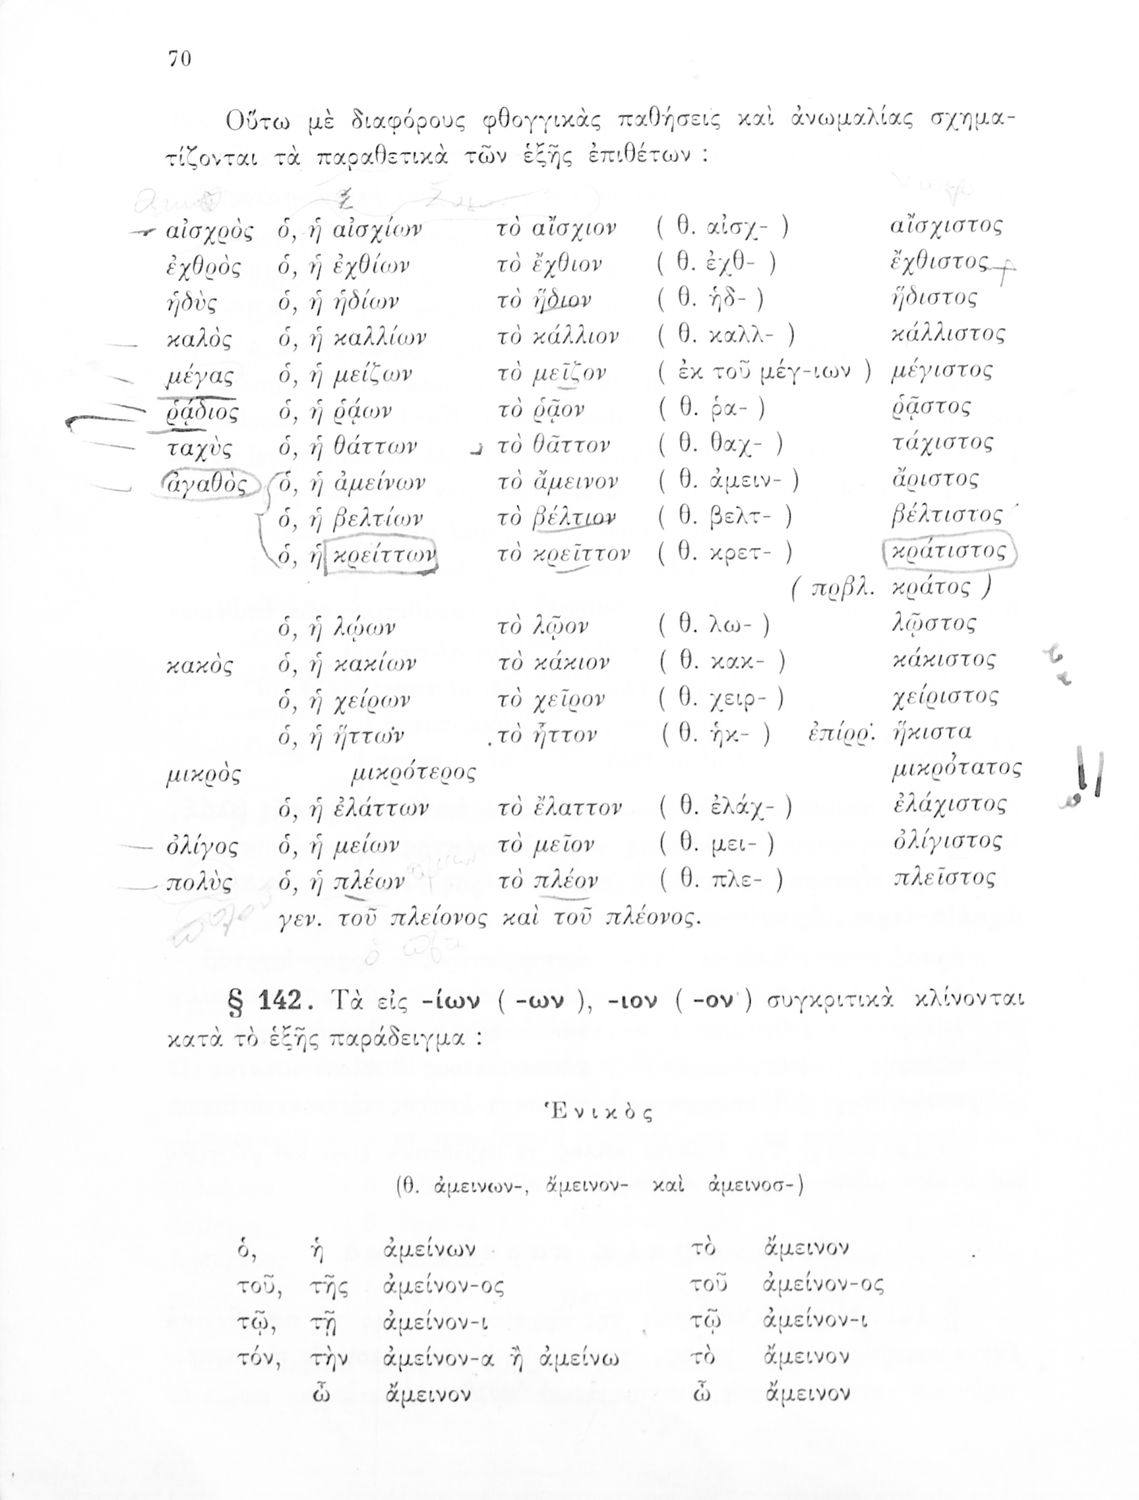 70
Οὕτω μὲ διαφόρους φθογγικὰς παθήσεις καὶ ἀνωμαλίας σχημα-
τίζονται τὰ παραθετικὰ τῶν ἑξῆς ἐπιθέτων :
αἰσχρὸς ὁ, ἡ αἰσχίων τὸ αἴσχιον ( θ. αἰσχ- ) αἴσχιστος
ἐχθρὸς ὁ, ἡ ἐχθίων τὸ ἔχθιον ( θ. ἐχθ- ) ἔχθιστος
ἡδὺς ὁ, ἡ ἡδίων τὸ ἥδιον ( θ. ἡδ- ) ἥδιστος
καλὸς ὁ, ἡ καλλίων τὸ κάλλιον ( θ. καλλ- ) κάλλιστος
μέγας ὁ, ἡ μείζων τὸ μεῖζον ( ἐκ τοῦ μέγ-ιων ) μέγιστος
ῥᾴδιος ὁ, ἡ ῥᾴων τὸ ῥᾷον ( θ. ῥα- ) ῥᾷστος
ταχὺς ὁ, ἡ θάττων τὸ θᾶττον ( θ. θαχ- ) τάχιστος
ἀγαθὸς ὁ, ἡ ἀμείνων τὸ ἄμεινον ( θ. ἀμειν- ) ἄριστος
ὁ, ἡ βελτίων τὸ βέλτιον ( θ. βελτ- ) βέλτιστος
ὁ, ἡ κρείττων τὸ κρεῖττον ( θ. κρετ- ) κράτιστος
( πρβλ. κράτος )
ὁ, ἡ λῴων τὸ λῷον ( θ. λω- ) λῷστος
κακὸς ὁ, ἡ κακίων τὸ κάκιον ( θ. κακ- ) κάκιστος
ὁ, ἡ χείρων τὸ χεῖρον ( θ. χειρ- ) χείριστος
ὁ, ἡ ἥττων τὸ ἧττον ( θ. ἡκ- ) ἐπίρρ. ἥκιστα
μικρὸς μικρότερος μικρότατος
ὁ, ἡ ἐλάττων τὸ ἔλαττον ( θ. ἐλάχ- ) ἐλάχιστος
ὀλίγος ὁ, ἡ μείων τὸ μεῖον ( θ. μει- ) ὀλίγιστος
πολὺς ὁ, ἡ πλέων τὸ πλέον ( θ. πλε- ) πλεῖστος
γεν. τοῦ πλείονος καὶ τοῦ πλέονος.
§ 142. Τὰ εἰς -ίων ( -ων ), -ιον ( -ον ) συγκριτικὰ κλίνονται
κατὰ τὸ ἑξῆς παράδειγμα :
Ἑνικὸς
(θ. ἀμεινων-, ἄμεινον- καὶ ἀμεινοσ-)
ὁ, ἡ ἀμείνων τὸ ἄμεινον
τοῦ, τῆς ἀμείνον-ος τοῦ ἀμείνον-ος
τῷ, τῇ ἀμείνον-ι τῷ ἀμείνον-ι
τόν, τὴν ἀμείνον-α ἢ ἀμείνω τὸ ἄμεινον
ὦ ἄμεινον ὦ ἄμεινον